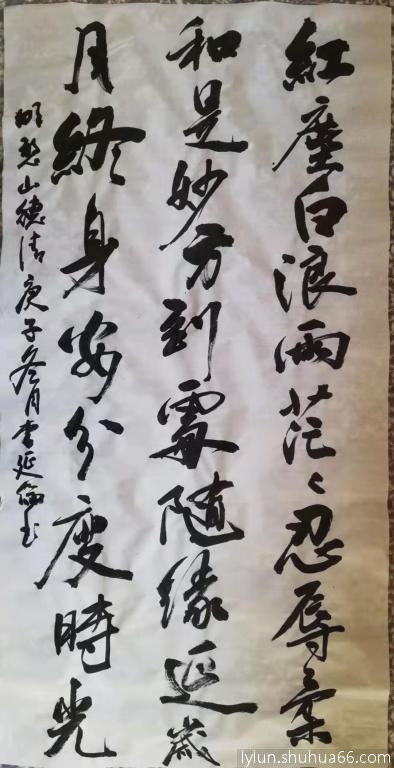 紅塵白浪兩茫々忍辱柔
和是妙方到處隨緣延歲
月終身安分度時光
明憨山德清庚子冬月李延倫书
lylun.shuhua66.com